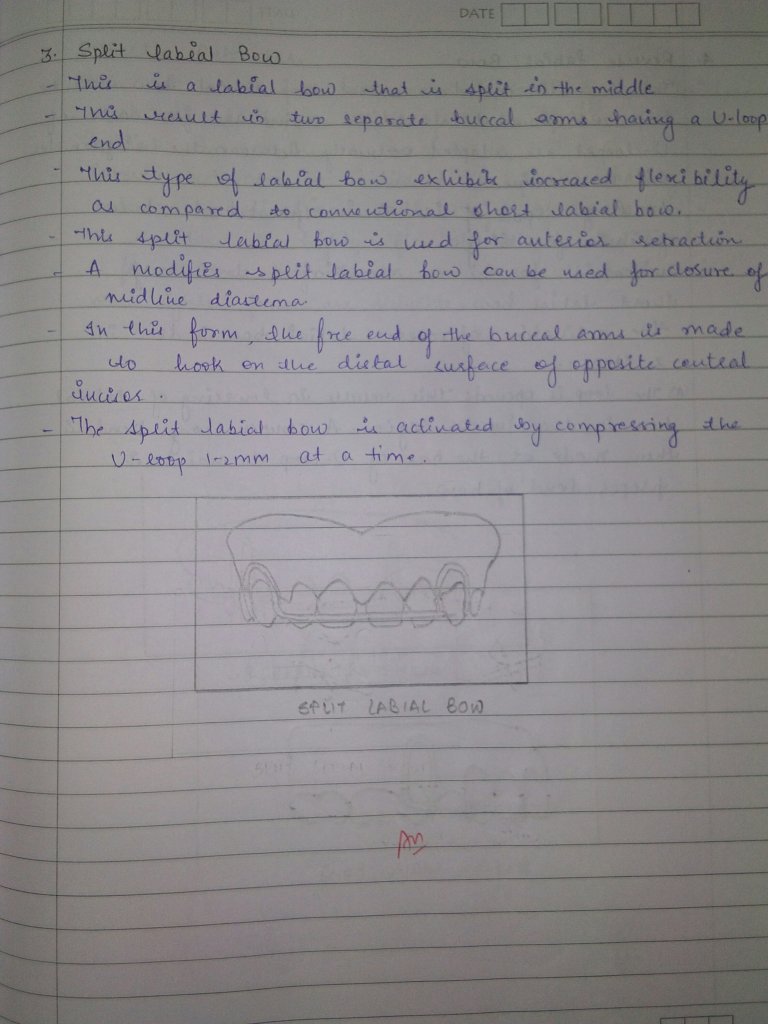 DATE
3. Split labial Bow
- This is a labial bow that is split in the middle
- This result in two separate buccal arms having a U-loop
end
- This type of labial bow exhibits increased flexibility
as compared to conventional short labial bow.
- This split labial bow is used for anterior retraction
- A modifies split labial bow can be used for closure of
midline diastema
- In this form, the free end of the buccal arms is made
to hook on the distal surface of opposite central
incisor.
- The split labial bow is activated by compressing the
U-loop 1-2mm at a time.
SPLIT LABIAL BOW